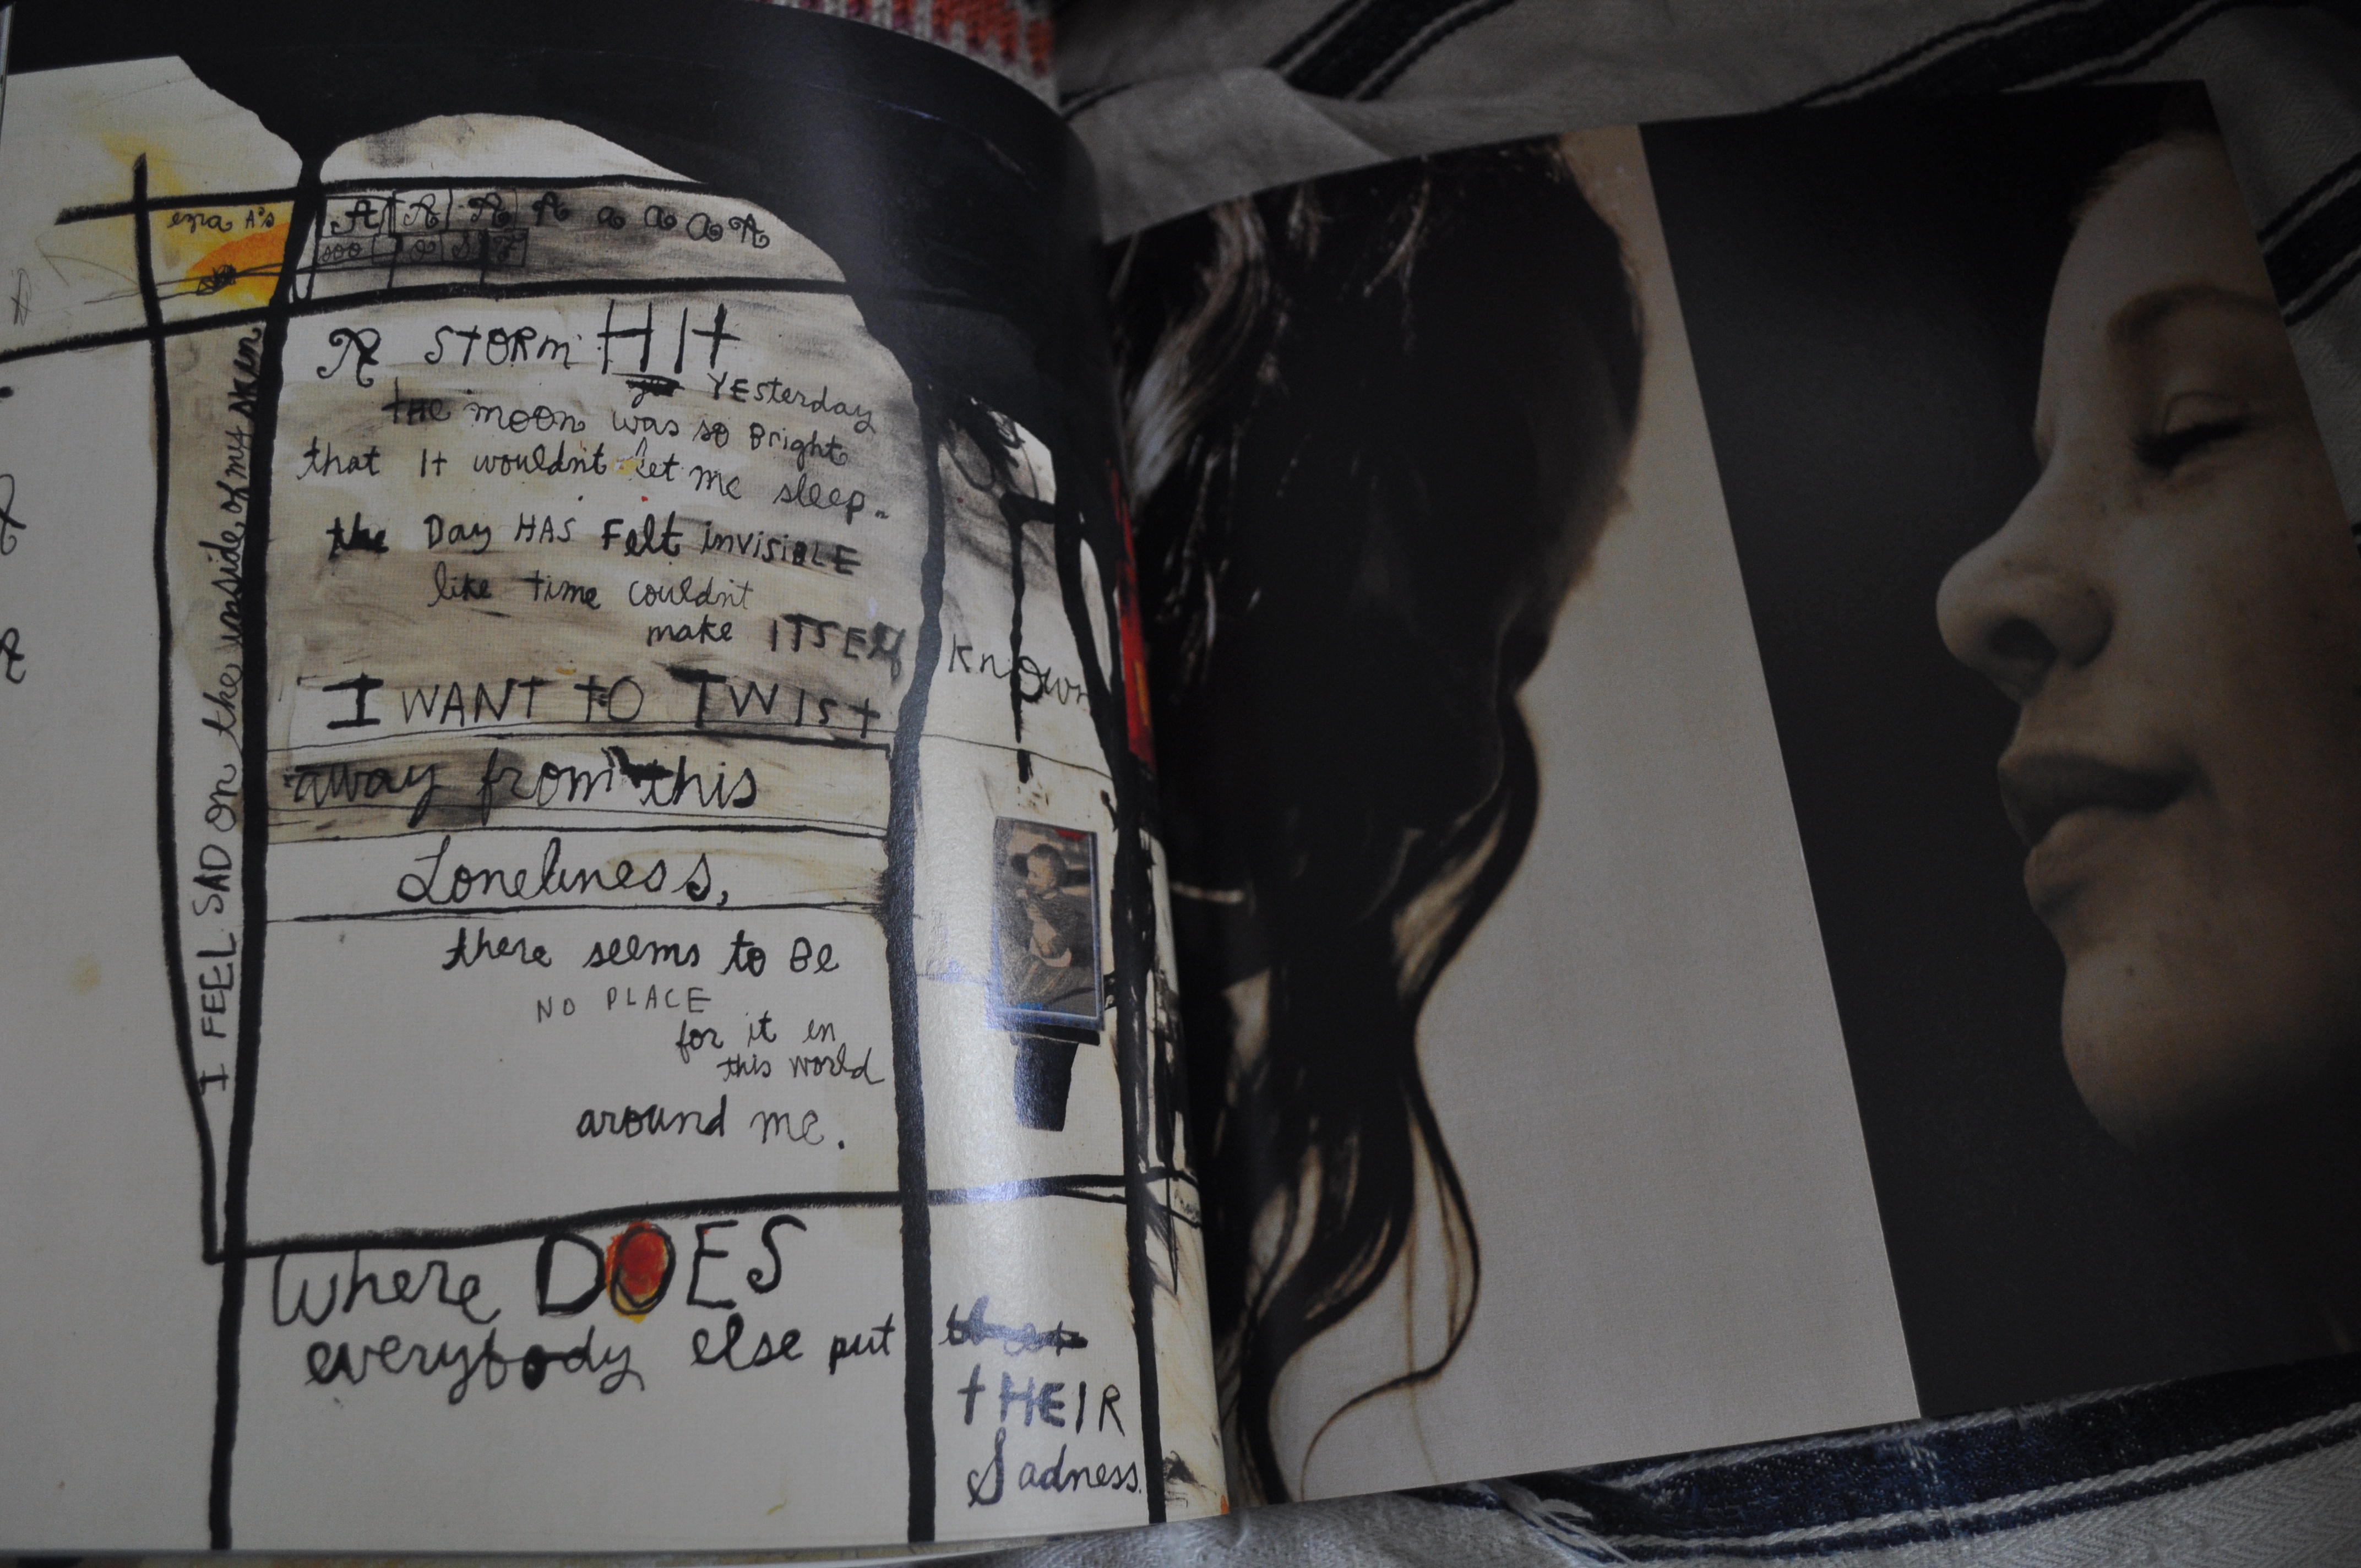 ezra A's
A A A A a a a A
A STORM HIT
YEsterday
tHE moon was so Bright
that It wouldnt let me sleep.
the Day HAS Felt invisiBLE
like time couldnt
make ITSElf known
I WANT tO TWIst
away from this
Loneliness,
there seems to Be
NO PLACE
for it in
this world
around me.
I FEEL SAD on the inside of my skin
Where DOES
everybody else put
tHEIR
Sadness.